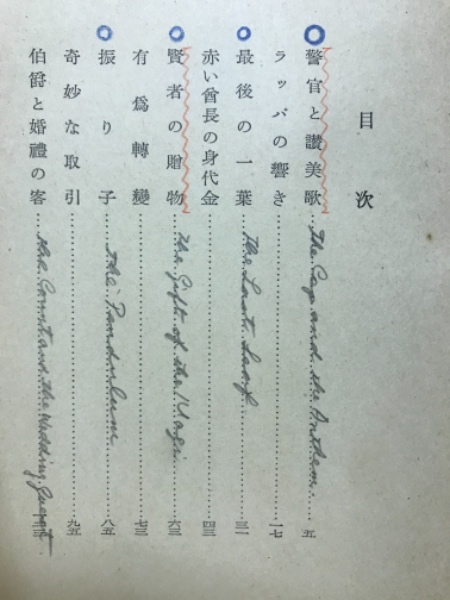 目次
警官と讃美歌 The Cop and the Anthem. 五
ラッパの響き 一七
最後の一葉 The Last Leaf 三一
赤い酋長の身代金 四三
賢者の贈物 The Gift of the Magi 六三
有為轉變 七三
振り子 The Pendulum 八五
奇妙な取引 九五
伯爵と婚禮の客 The Count and the Wedding Guest